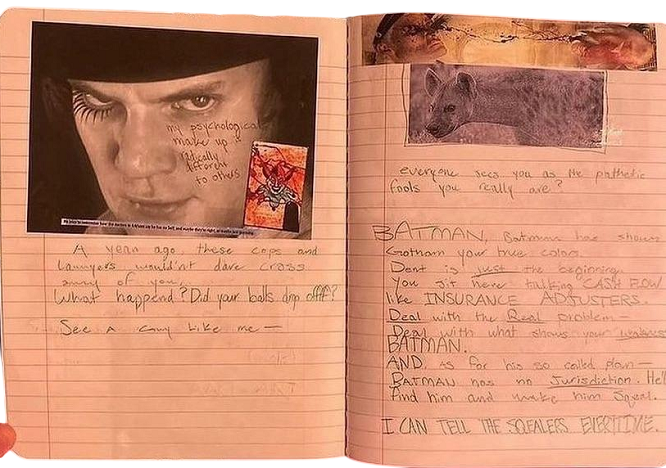 my psychological
make up is
radically
different
to others
A year ago these cops and
Lawyers wouldn't dare cross
any of you.
What happend? Did your balls drop offff?
See a guy like me —
everyone sees you as the pathetic
fools you really are?
BATMAN, Batman has shown
Gotham your true colors.
Dent is just the beginning.
You sit here talking CASH FLOW
like INSURANCE ADJUSTERS.
Deal with the Real problem —
Deal with what shows your weakness
BATMAN.
AND as for his so called plan —
BATMAN has no Jurisdiction. He'll
find him and make him Squeal.
I CAN TELL THE SQEALERS EVERTIME.